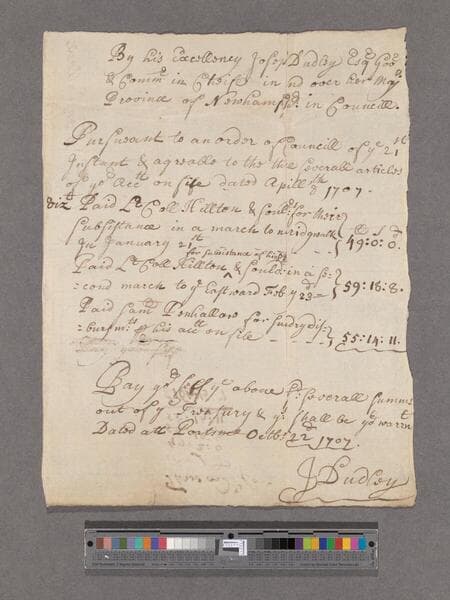 By his Excellency Joseph Dudley Esqr Govr
& Commr in Chief in and over her Majts
Province of Newhampsr in Councill.
Pursuant to an order of Councill of ye 21st
Instant & agreeable to the severall articles
of yor Acct on file dated Aprill 8th 1707.
vizt Paid Lt Coll Hillton & Soulds for their
Subsistance in a march to
In January 21st
49:0:0.
for subsistance of himself
Paid Lt Coll Hillton & Sould: in a Se:
=cond march to ye Eastward Feby 23d =
59:18:8.
Paid Saml Penhallow for sundry dis:
=bursmts p his acct on file
55:14:11.
Pay yor self ye above sd severall Summs
out of ye Treasury & ys shall be yor warrt
Dated att Portsmo Octbr 22d 1707.
J Dudley